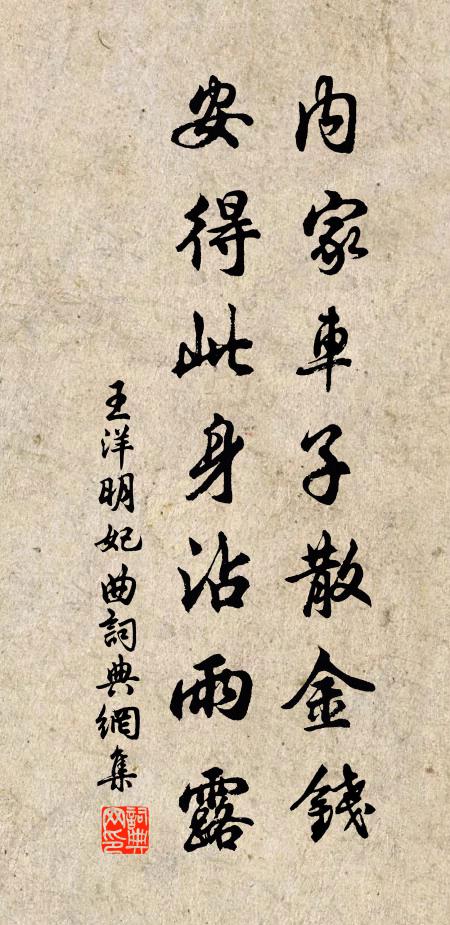 內家車子散金錢
安得此身沾雨露
王洋明妃曲詞典網集
詞典網印